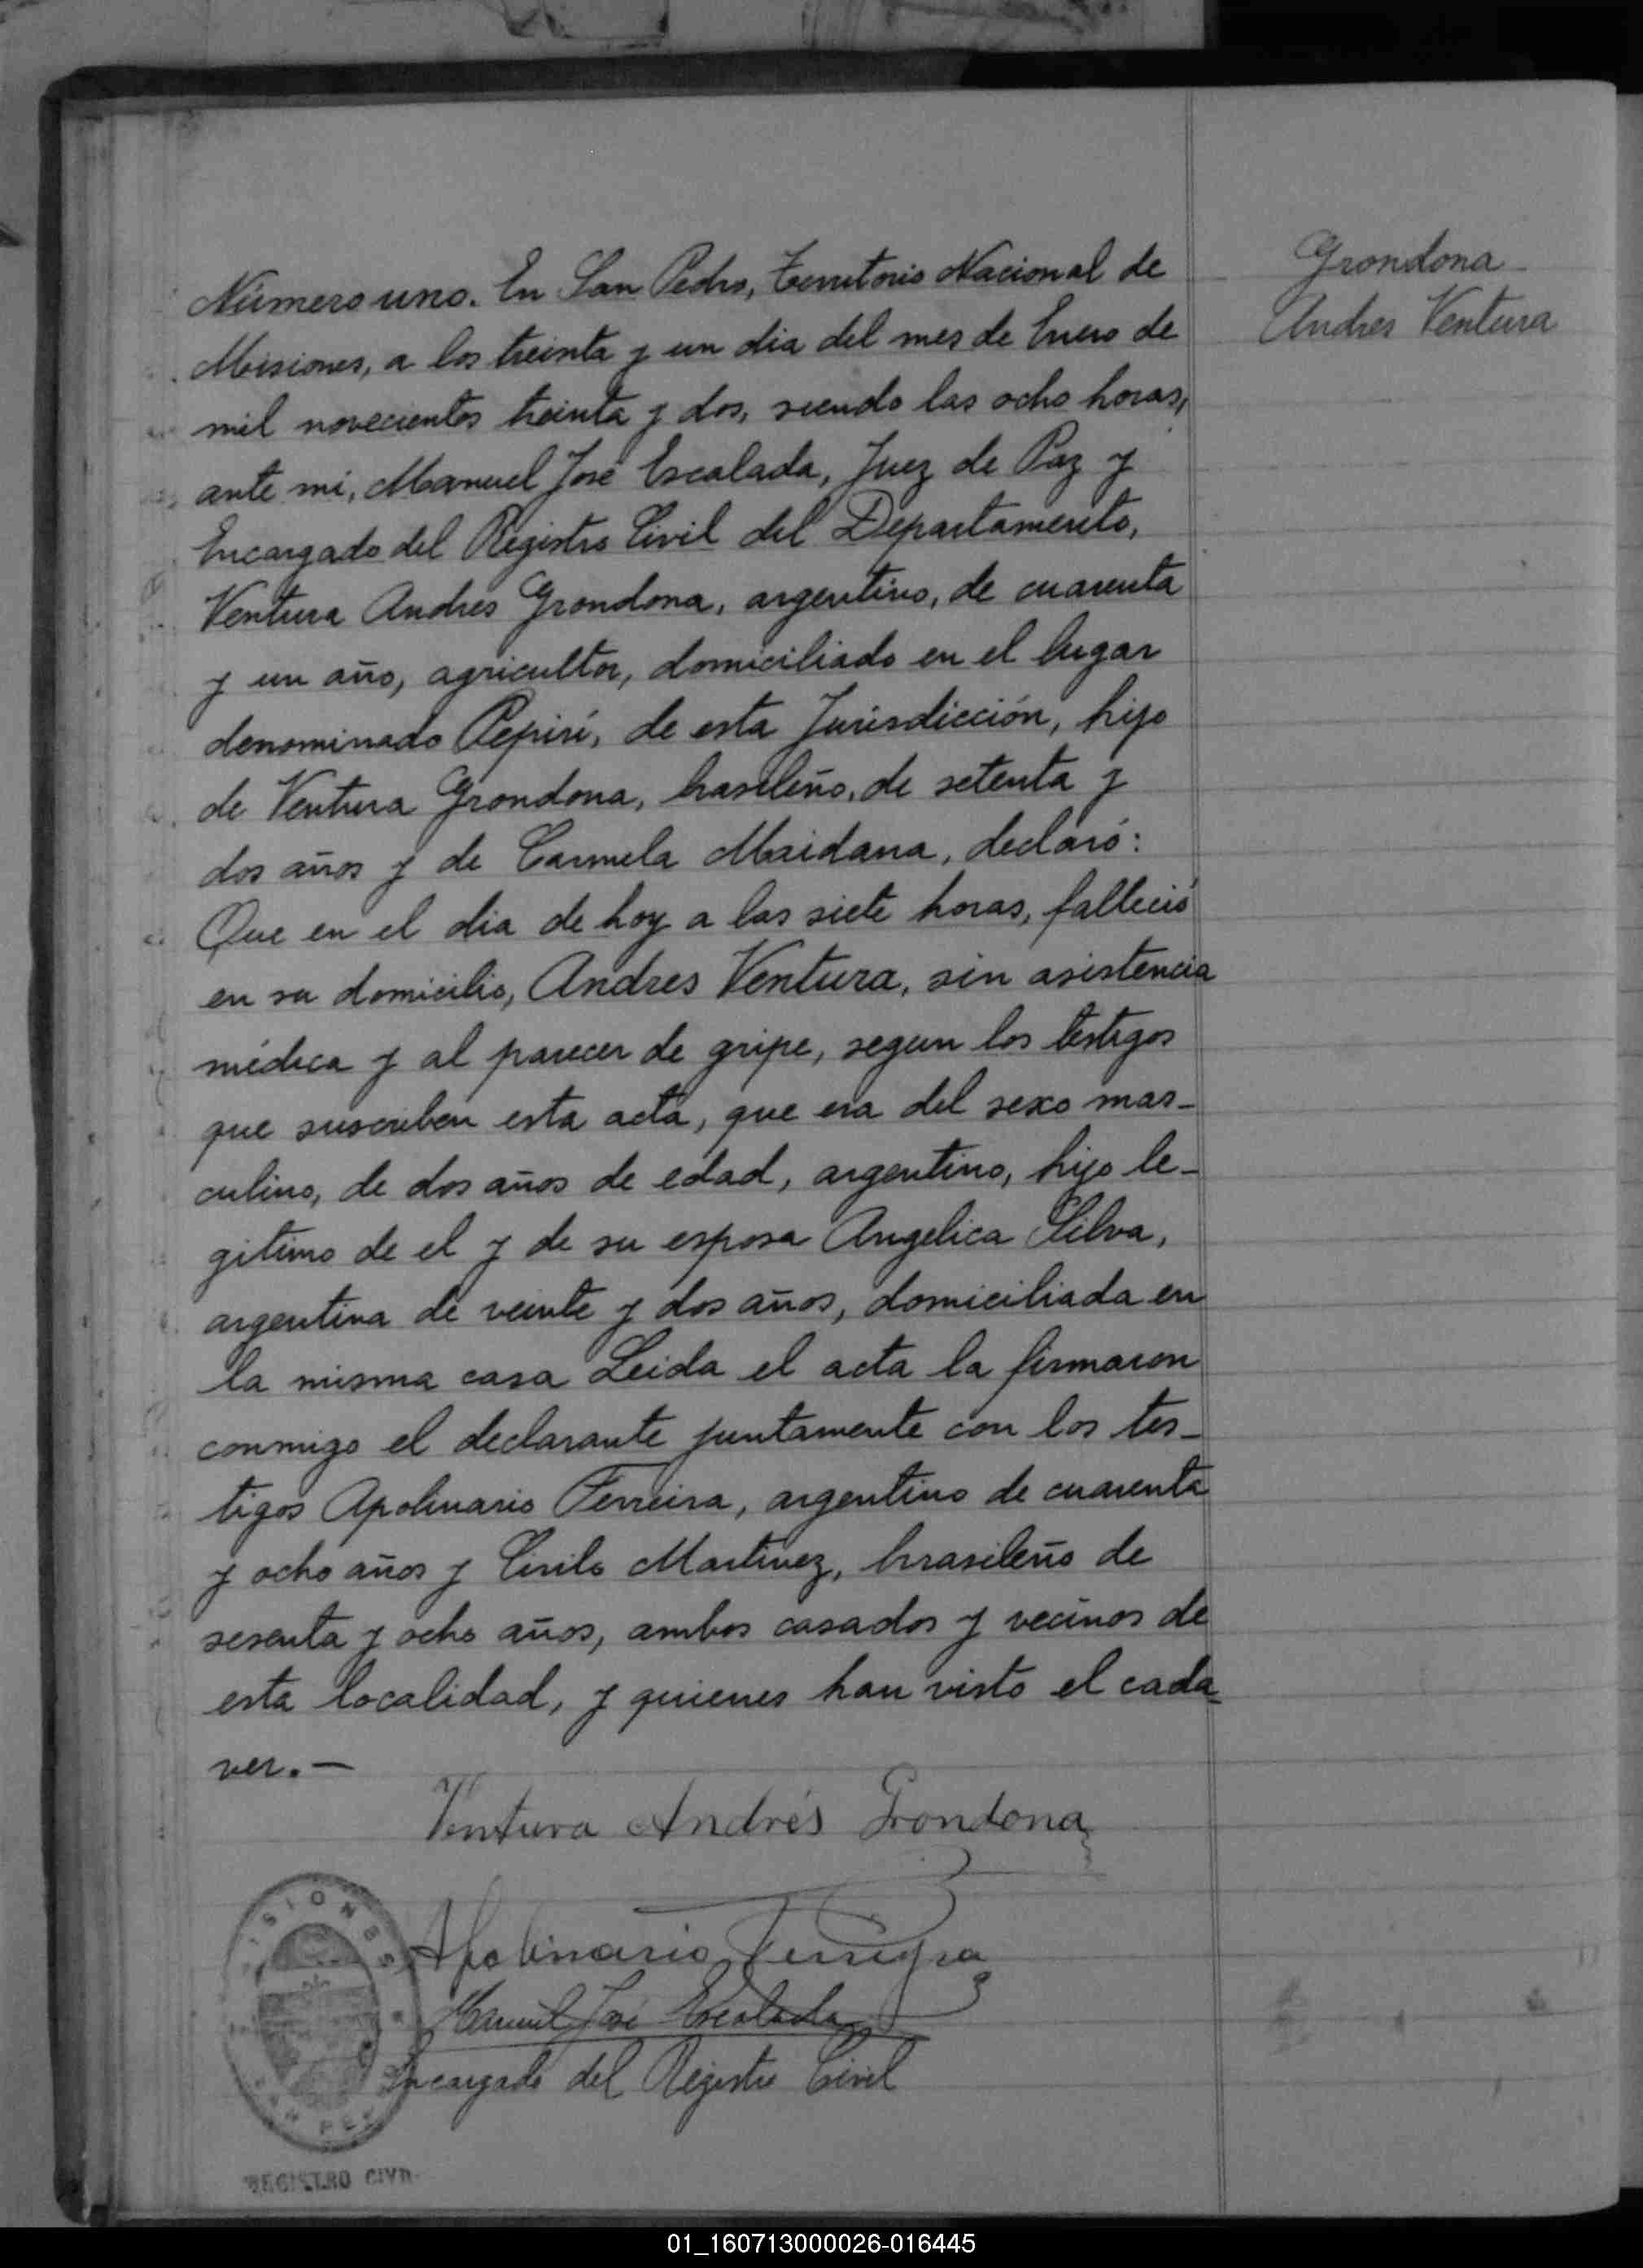 Grondona
Andres Ventura
Número uno. En San Pedro, Territorio Nacional de
Misiones, a los treinta y un dia del mes de Enero de
mil novecientos treinta y dos, siendo las ocho horas,
ante mi, Manuel José Escalada, Juez de Paz y
Encargado del Registro Civil del Departamento,
Ventura Andres Grondona, argentino, de cuarenta
y un año, agricultor, domiciliado en el lugar
denominado Pepirí, de esta Jurisdicción, hijo
de Ventura Grondona, brasileño, de setenta y
dos años y de Carmela Maidana, declaró:
Que en el dia de hoy a las siete horas, falleció
en su domicilio, Andres Ventura, sin asistencia
médica y al parecer de gripe, segun los testigos
que suscriben esta acta, que era del sexo mas-
culino, de dos años de edad, argentino, hijo le-
gitimo de el y de su esposa Angelica Silva,
argentina de veinte y dos años, domiciliada en
la misma casa Leida el acta la firmaron
conmigo el declarante juntamente con los tes-
tigos Apolinario Ferreira, argentino de cuarenta
y ocho años y Cirilo Martinez, brasileño de
sesenta y ocho años, ambos casados y vecinos de
esta localidad, y quienes han visto el cada-
ver.—
Ventura Andrés Grondona
Apolinario Ferreyra
Manuel José Escalada
Encargado del Registro Civil
MISIONES
REGISTRO CIVIL
01_160713000026-016445